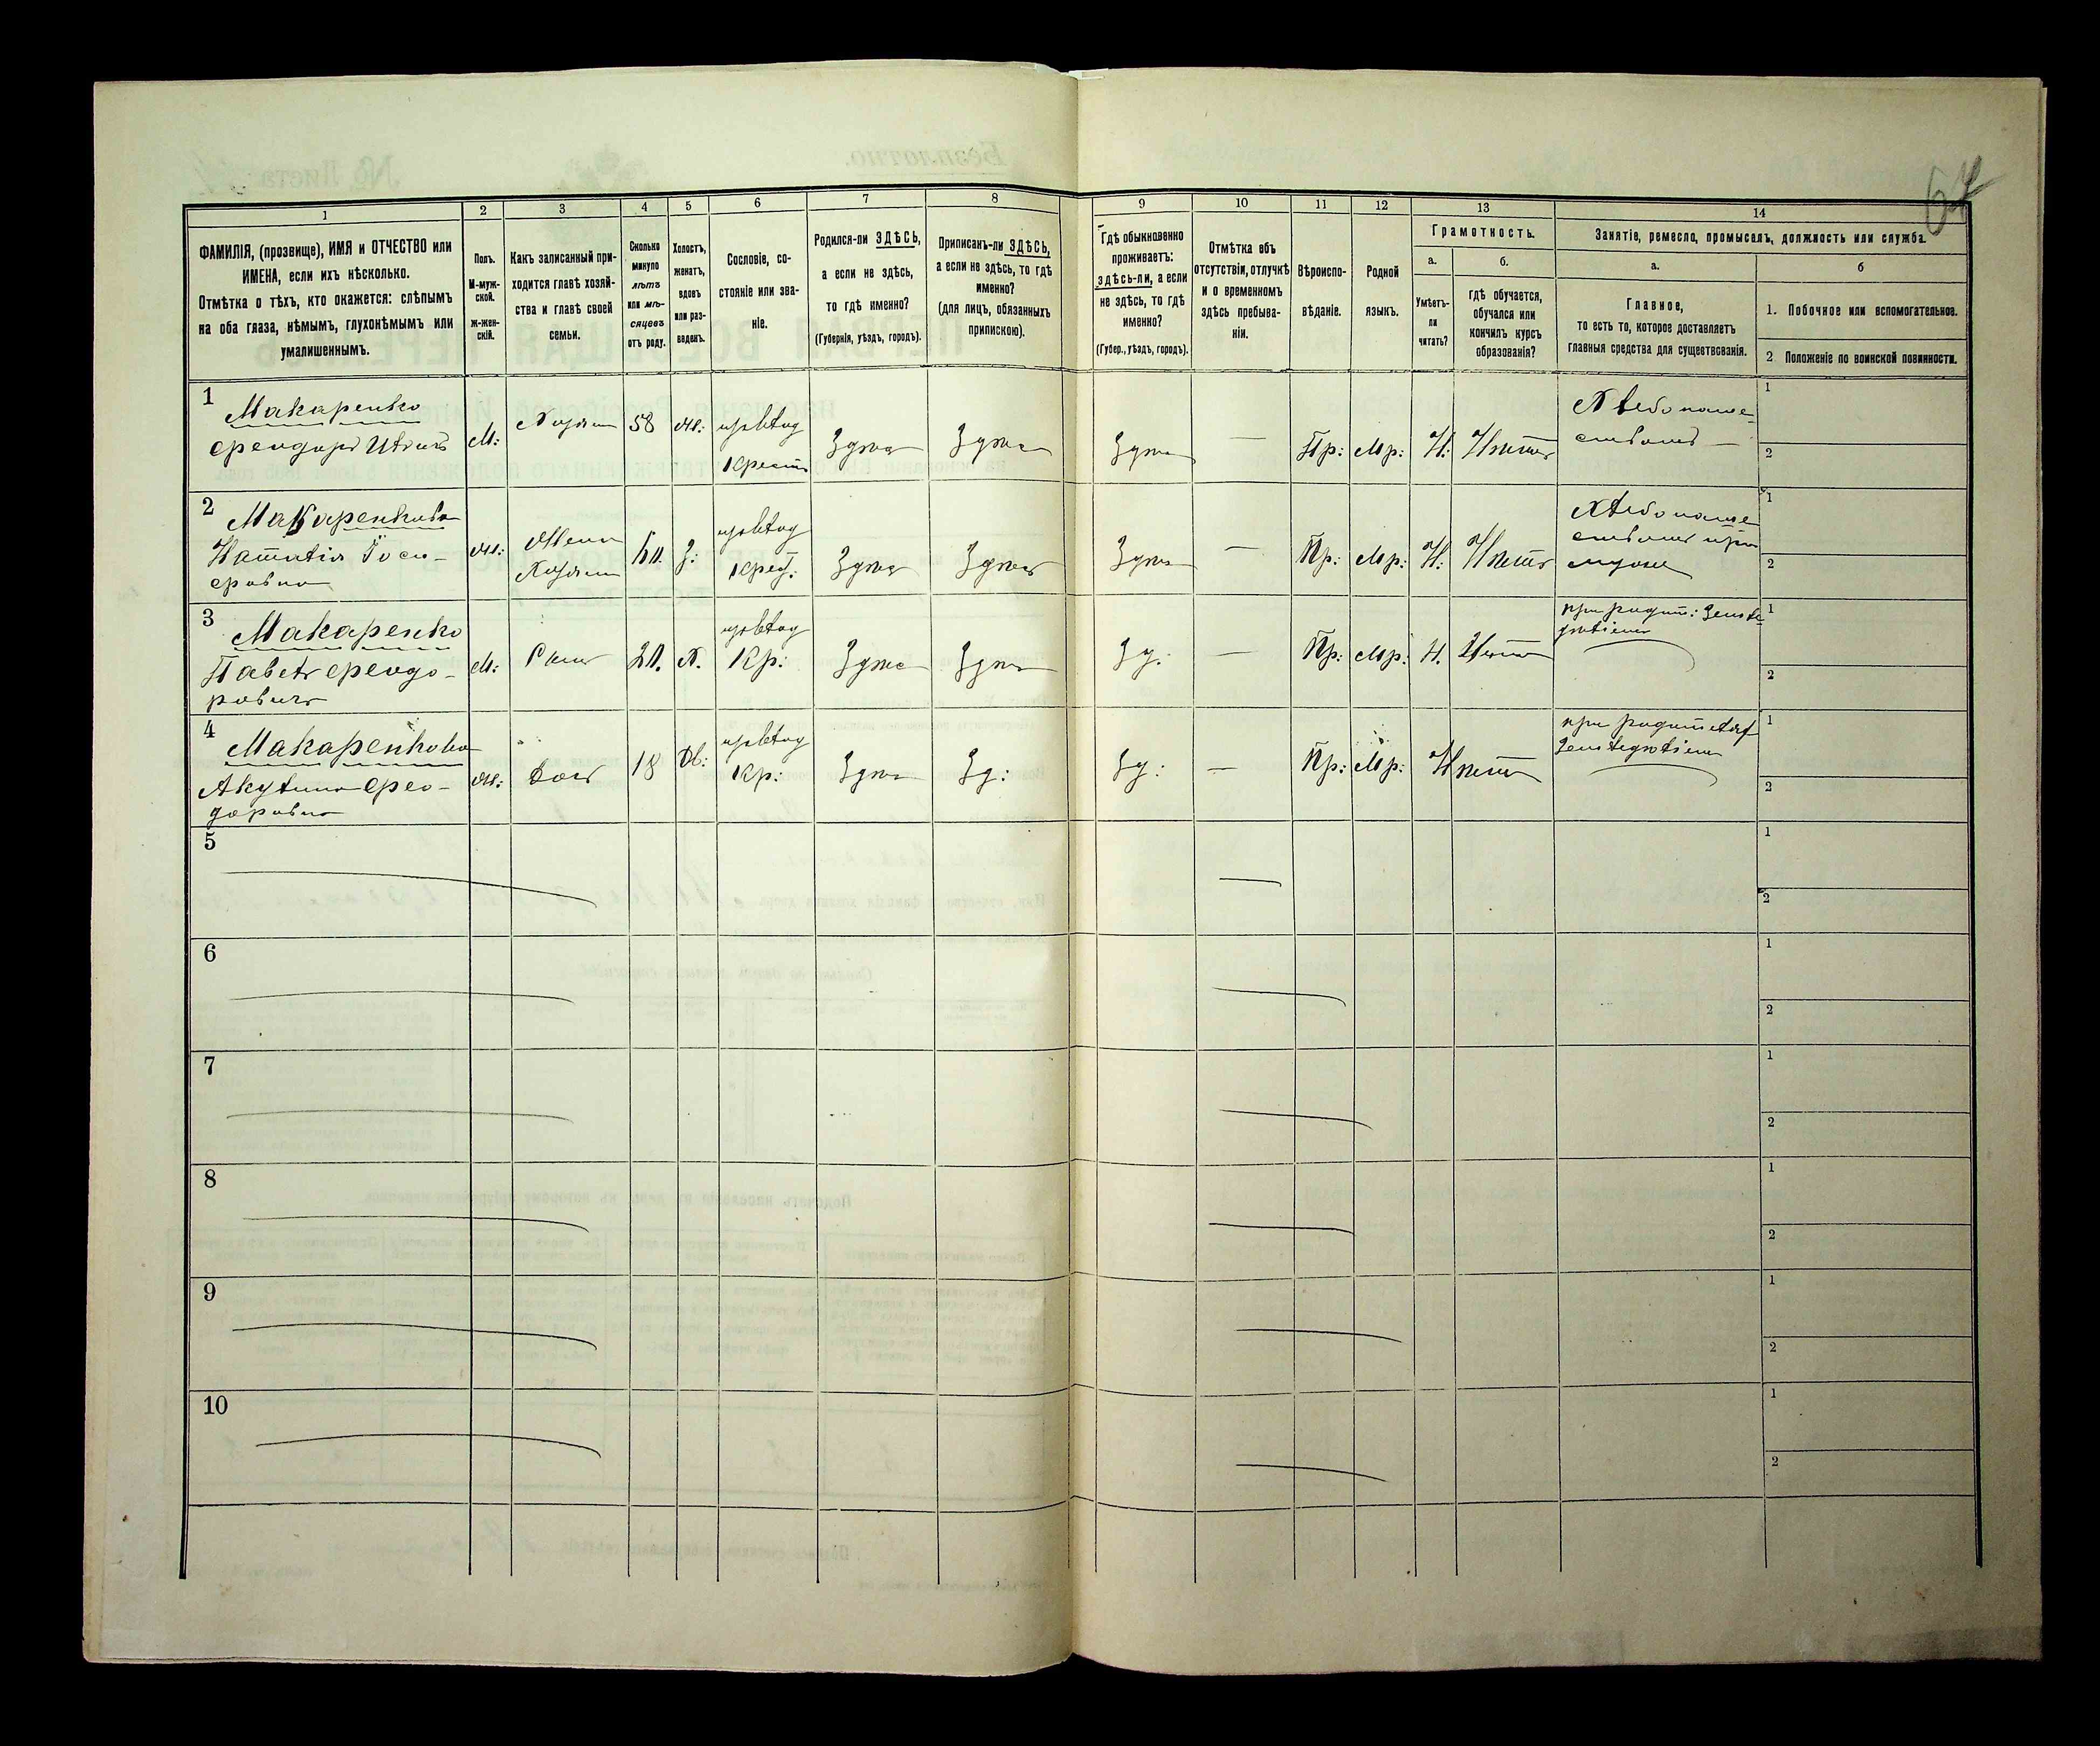 1
2
3
4
5
6
7
8
9
10
11
12
13
14
ФАМИЛІЯ, (прозвище), ИМЯ и ОТЧЕСТВО или
ИМЕНА, если ихъ нѣсколько.
Отмѣтка о тѣхъ, кто окажется: слѣпымъ
на оба глаза, нѣмымъ, глухонѣмымъ или
умалишеннымъ.
Полъ.
М-муж-
ской.
ж-жен-
скій.
Какъ записанный при-
ходится главѣ хозяй-
ства и главѣ своей
семьи.
Сколько
минуло
лѣтъ
или мѣ-
сяцевъ
отъ роду.
Холостъ,
женатъ,
вдовъ
или раз-
веденъ.
Сословіе, со-
стояніе или зва-
ніе.
Родился-ли ЗДѢСЬ,
а если не здѣсь,
то гдѣ именно?
(Губернія, уѣздъ, городъ).
Приписанъ-ли ЗДѢСЬ,
а если не здѣсь, то гдѣ
именно?
(для лицъ, обязанныхъ
припискою).
Гдѣ обыкновенно
проживаетъ:
здѣсь-ли, а если
не здѣсь, то гдѣ
именно?
(Губер., уѣздъ, городъ).
Отмѣтка объ
отсутствіи, отлучкѣ
и о временномъ
здѣсь пребыва-
ніи.
Вѣроиспо-
вѣданіе.
Родной
языкъ.
Грамотность.
а.
Умѣетъ-
ли
читать?
б.
Гдѣ обучается,
обучался или
кончилъ курсъ
образованія?
Занятіе, ремесло, промыселъ, должность или служба.
а.
Главное,
то есть то, которое доставляетъ
главныя средства для существованія.
б
1. Побочное или вспомогательное.
2. Положеніе по воинской повинности.
1
Макаренко
Феодоръ
М:
Хозяин
58
Крест
Здѣсь
Здѣсь
Здѣсь
Пр:
Мр:
Н:
Хлебопаше-
ством
1
2
2
Макаренкова
Наталія
Жена
Хозяин
Крест:
Здѣсь
Здѣсь
Здѣсь
Пр:
Мр:
Н:
Хлебопаше
ством при
муже
1
2
3
Макаренко
Павелъ Феодо-
ровичъ
М:
Сынъ
Х.
Кр:
Здѣсь
Здѣсь
Зд:
Пр:
Мр:
Н.
при родит: Земле-
делием
1
2
4
Макаренкова
Акулина Фео-
доровна
Дочь
18
Дѣ:
Кр:
Здѣсь
Зд:
Зд:
Пр:
Мр:
при родителях
Земледелием
1
2
5
1
2
6
1
2
7
1
2
8
1
2
9
1
2
10
1
2